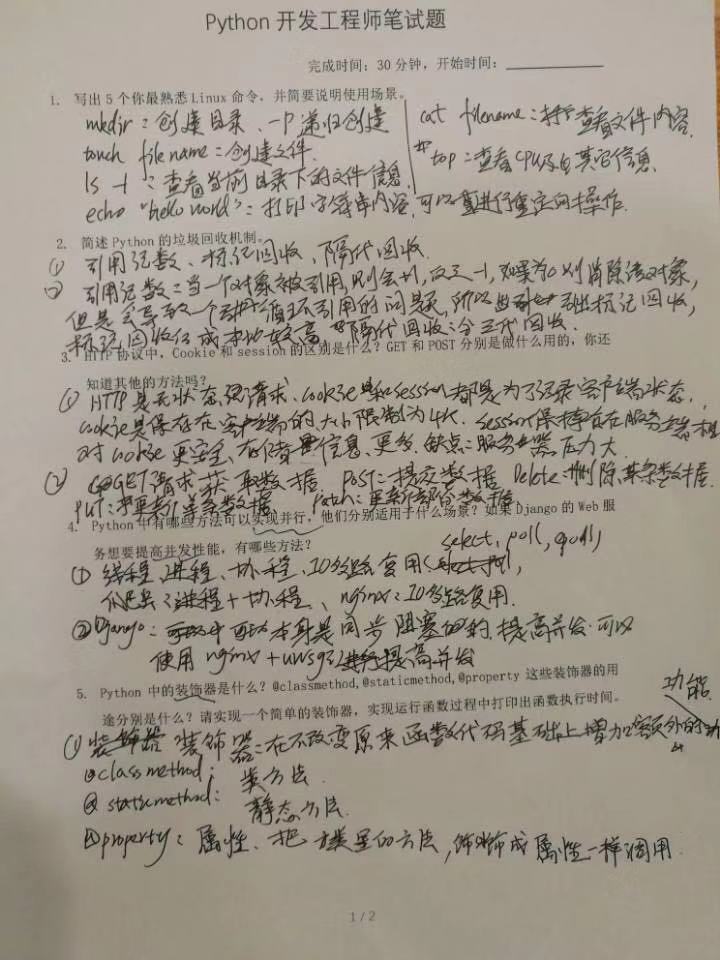 Python 开发工程师笔试题
完成时间: 30 分钟, 开始时间:
1. 写出 5 个你最熟悉 Linux 命令, 并简要说明使用场景。
mkdir: 创建目录、-p 递归创建
touch filename: 创建文件.
ls -l: 查看当前目录下的文件信息.
echo "hello world": 打印字符串内容,可以重进行重定向操作.
cat filename: 查看文件内容.
top: 查看CPU及其它信息.
2. 简述 Python 的垃圾回收机制。
① 引用记数、标记回收、隔代回收.
② 引用记数: 当一个对象被引用,则会+1,反之-1,如果为0则消除该对象,
但是会导致一个循环引用的问题,所以引出标记回收,
标记回收 成本比较高 隔代回收: 分三代回收.
3. HTTP 协议中, Cookie 和 session 的区别是什么? GET 和 POST 分别是做什么用的, 你还
知道其他的方法吗?
① HTTP是无状态 请求、cookie和session都是为了记录客户端状态.
cookie是保存在客户端的,大小限制为4K. session保存在服务端相
对cookie更安全、存储信息、更多. 缺点: 服务器压力大.
② GET请求获取数据、POST: 提交数据 Delete: 删除某条数据.
PUT: 更新整条数据、Patch: 更新部分数据
4. Python 中有哪些方法可以实现并行, 他们分别适用于什么场景? 如果 Django 的 Web 服
务想要提高并发性能, 有哪些方法?
select, poll, epoll
① 线程、进程、协程、IO多路复用
进程+协程、nginx: IO多路复用.
② Django: 本身是同步阻塞的, 提高并发可以
使用nginx + uwsgi 提高并发
5. Python 中的装饰器是什么? @classmethod, @staticmethod, @property 这些装饰器的用
途分别是什么? 请实现一个简单的装饰器, 实现运行函数过程中打印出函数执行时间。
功能
① 装饰器: 在不改变原来函数代码基础上增加额外的
@classmethod: 类方法.
@staticmethod: 静态方法.
@property: 属性、把类里的方法,装饰成属性一样调用.
1 / 2